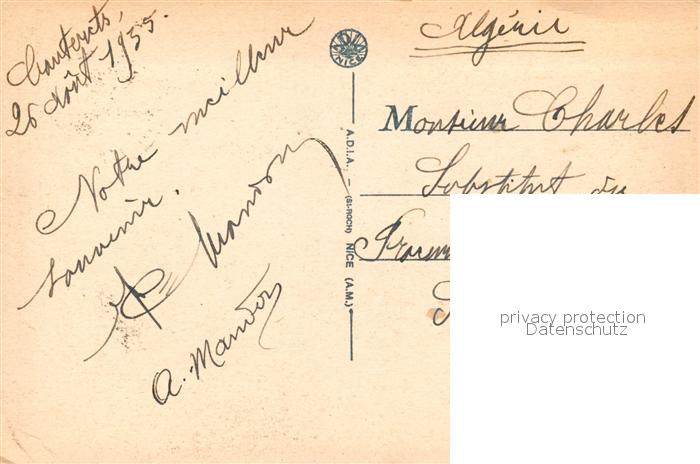 Cauterets,
26 Août 1955.
Notre meilleur
souvenir.
Mandon
A. Mandon
ADIA
NICE
A.D.I.A. — (ST-ROCH) NICE (A.M.)
Algérie
Monsieur Charles
Substitut du
privacy protection
Datenschutz